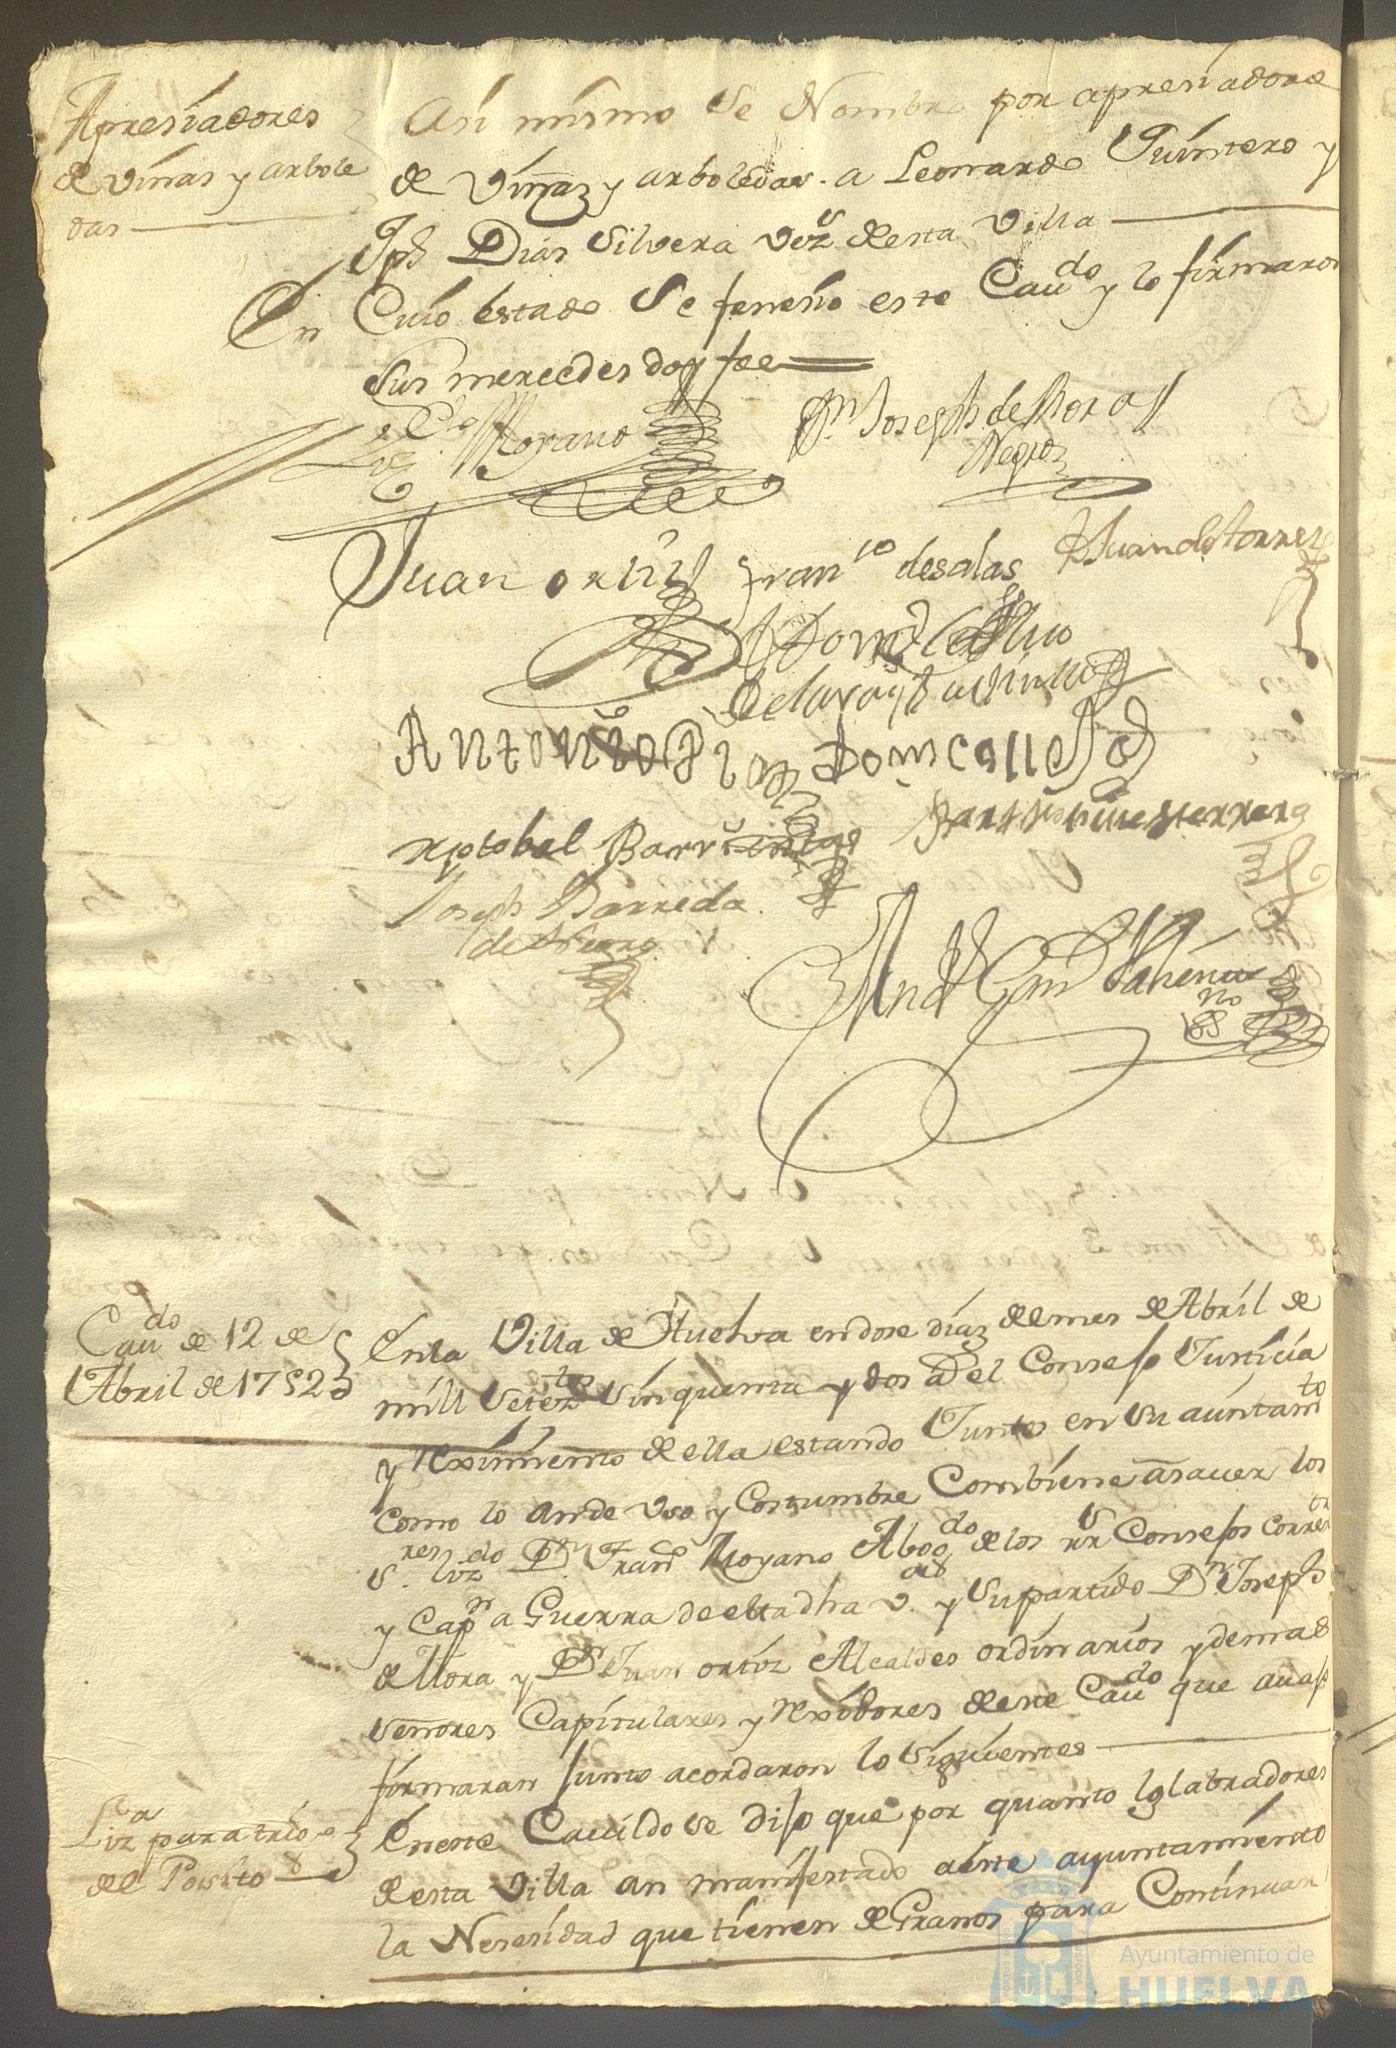 Apresiadores
de viñas y arbole
das
Asi mismo se Nombro por apresiadores
de Viñas y arboledas a Leonardo Quintero y
Jph Dias Silvera vezs desta Villa
En Cuio estado se fenesio este Cavdo y lo firmaron
Sus mercedes doy fee
Lizdo Moyano
Dn Joseph de Mora
Negro
Juan ortiz
Franco de salas
Juan de torres
Antonio Dias
Domco
xptobal Barrientos
Joseph Barreda
Cavdo de 12 de
Abril de 1752
En la Villa de Huelva en dose dias del mes de Abril de
mill seteztos sinquenta y dos a. el Consejo Justicia
y reximiento de ella estando Juntos en su aiuntamto
como lo an de uso y Costumbre Combiene a saver los
Sres lizdo Dn Franco Moyano Abogdo de los rrs Consejos corretor
y Capn a Guerra de esta dha v. y su partido Dn Joseph
de Mora y Dn Juan ortiz Alcaldes ordinarios y demas
señores Capitulares y rexidores deste Cavdo que avajo
firmaran Junto acordaron lo siguiente
Liza para trigo
del Posito
En este Cavildo se dijo que por quanto los labradores
desta Villa an manifestado a este ayuntamiento
la Nesesidad que tienen de Granos para Continuar
Ayuntamiento de
HUELVA